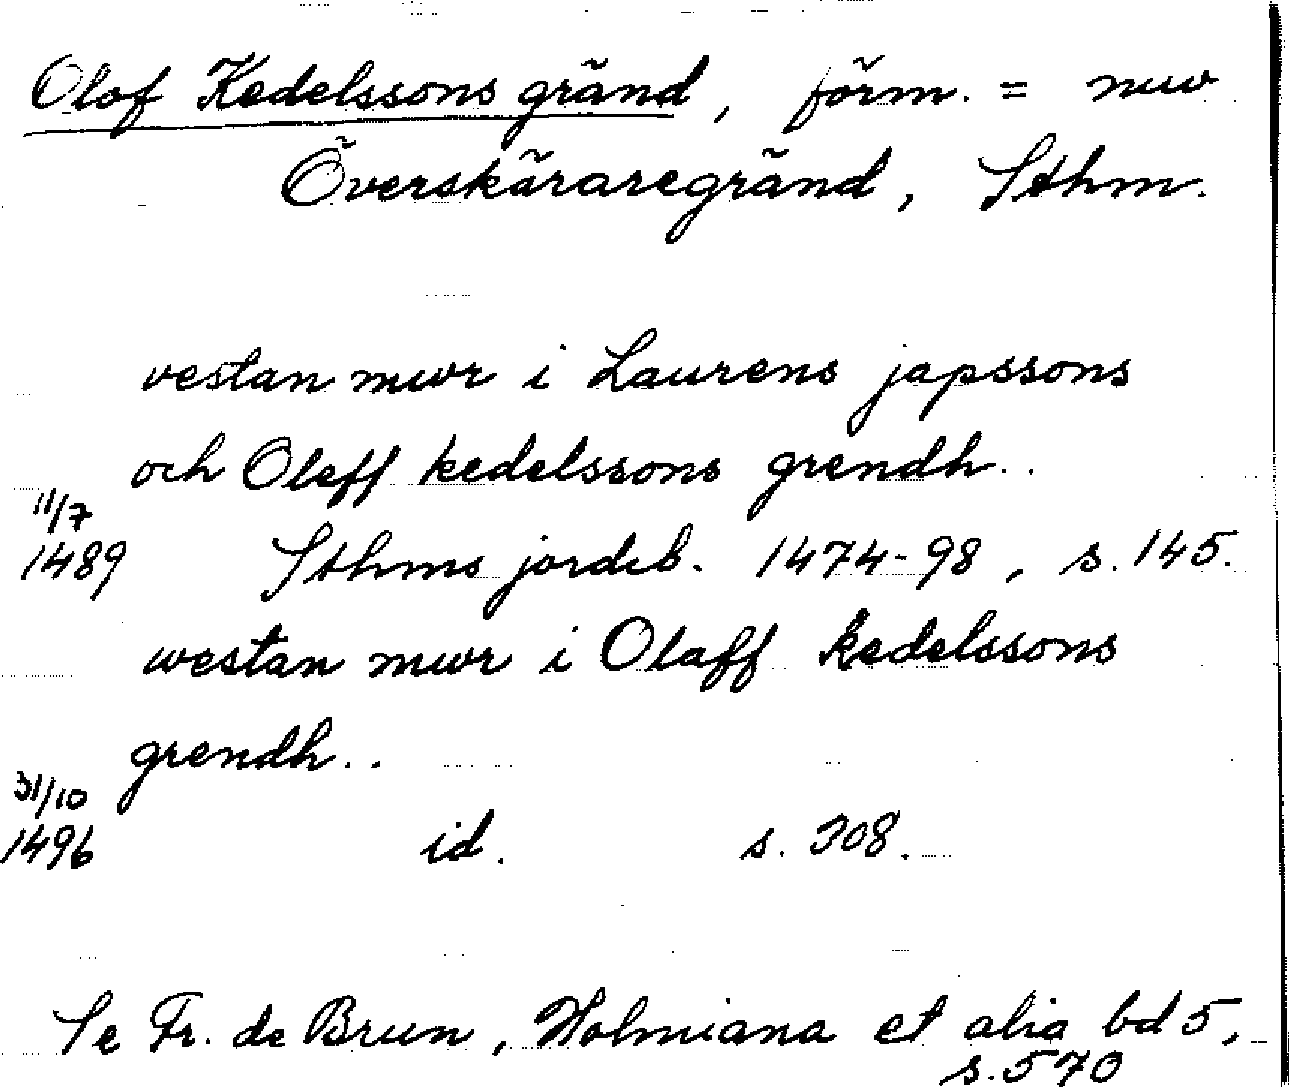 Olof Kedelssons gränd, förm. = nuv
Överskäraregränd, Sthm.
vestan mwr i Laurens japssons
och Oleff kedelssons grendh..
11/7
1489 Sthms jordeb. 1474-98, s. 145.
westan mwr i Olaff kedelssons
grendh..
31/10
1496 id. s. 308.
Se Fr. de Brun, Holmiana et alia bd 5,
s. 570